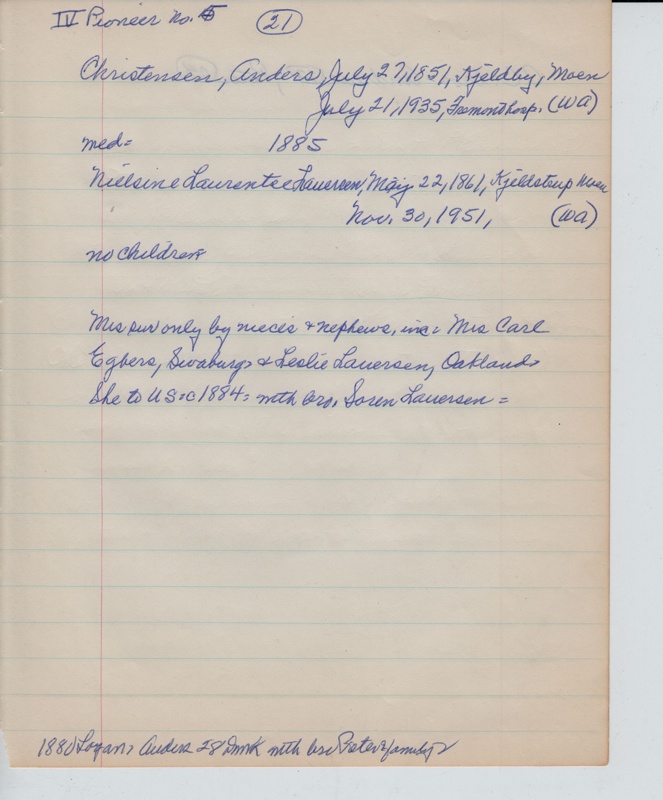 IV Pioneer No. 5 (21)
Christensen, Anders, July 27, 1851, Kjeldby, Moen
July 21, 1935, Fremont hosp. (WA)
med= 1885
Nielsine Laurentce Lauersen, May 22, 1861, Kjeldstrup Moen
Nov. 30, 1951, (WA)
no children
Mrs sur only by nieces & nephews, inc= Mrs Carl
Egbers, Swaburg, & Leslie Lauersen, Oakland=
She to US=c1884= mth bro, Soren Lauersen=
1880 Logan= Anders 28 Dmk mth bro Peter & family